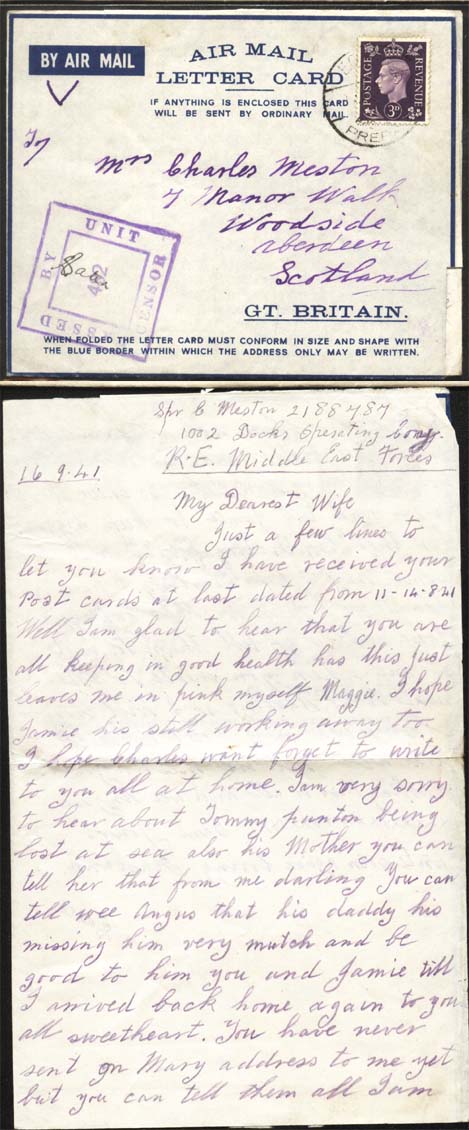 BY AIR MAIL
AIR MAIL
LETTER CARD
IF ANYTHING IS ENCLOSED THIS CARD
WILL BE SENT BY ORDINARY MAIL.
POSTAGE REVENUE
3D
PREP
To
Mrs Charles Meston
7 Manor Walk
Woodside
Aberdeen
Scotland
GT. BRITAIN.
UNIT
CENSOR
SSED
BY
WHEN FOLDED THE LETTER CARD MUST CONFORM IN SIZE AND SHAPE WITH
THE BLUE BORDER WITHIN WHICH THE ADDRESS ONLY MAY BE WRITTEN.
Spr C Meston 2188787
1002 Docks Operating Coay.
R.E. Middle East Forces
16 9.41
My Dearest Wife
Just a few lines to
let you know I have received your
Post cards at last dated from 11-14-8
Well I am glad to hear that you are
all keeping in good health has this just
leaves me in pink myself Maggie. I hope
Jamie his still working away too
I hope Charles want forget to write
to you all at home. I am very sorry
to hear about Tommy punton being
lost at sea also his Mother you can
tell her that from me darling You can
tell wee Angus that his daddy his
missing him very mutch and be
good to him you and Jamie till
I arrived back home again to you
all sweetheart. You have never
sent on Mary address to me yet
but you can tell them all I am